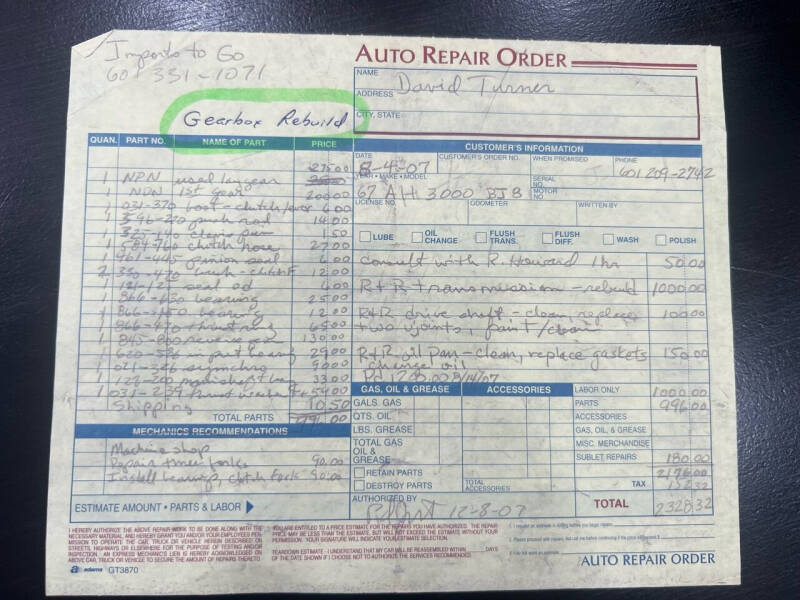 Imports to Go
601 331-1071
Gearbox Rebuild
AUTO REPAIR ORDER
NAME David Turner
ADDRESS
CITY, STATE
QUAN. PART NO. NAME OF PART PRICE
CUSTOMER'S INFORMATION
DATE 8-4-07 CUSTOMER'S ORDER NO. WHEN PROMISED PHONE 601 209-2742
YEAR • MAKE • MODEL 67 AH 3000 BJ8 SERIAL NO. MOTOR NO.
LICENSE NO. ODOMETER WRITTEN BY
LUBE OIL CHANGE FLUSH TRANS. FLUSH DIFF. WASH POLISH
275.00
1 NPN used laygear
1 NPN 1st gear 200.00
1 031-370 boot - clutch lever 6.00
1 push rod 14.00
1 clevis pin 1.50
1 clutch hose 27.00
1 961-445 pinion seal 6.00
2 330-470 12.00
1 seal 4.00
1 bearing 25.00
1 bearing 12.00
1 thrust ring 65.00
1 845-800 reverse gear 130.00
1 input bearing 29.00
1 synchro 90.00
1 33.00
1 031-239 54.00
Shipping 10.50
TOTAL PARTS
Consult with R. Howard 1 hr 50.00
R+R transmission - rebuild 1000.00
R+R drive shaft - clean, replace 100.00
two ujoints, paint/clean
R+R oil pan - clean, replace gaskets 150.00
change oil
Pd 1200.00 8/14/07
MECHANICS RECOMMENDATIONS
Machine shop
Repair three forks 90.00
Install bearing, clutch fork 90.00
ESTIMATE AMOUNT • PARTS & LABOR
GAS, OIL & GREASE ACCESSORIES
GALS. GAS
QTS. OIL
LBS. GREASE
TOTAL GAS OIL & GREASE
RETAIN PARTS
DESTROY PARTS
TOTAL ACCESSORIES
LABOR ONLY 1000.00
PARTS 996.00
ACCESSORIES
GAS, OIL & GREASE
MISC. MERCHANDISE
SUBLET REPAIRS 180.00
2176.00
TAX 152.32
TOTAL 2328.32
AUTHORIZED BY 12-8-07
I HEREBY AUTHORIZE THE ABOVE REPAIR WORK TO BE DONE ALONG WITH THE
NECESSARY MATERIAL, AND HEREBY GRANT YOU AND/OR YOUR EMPLOYEES PER-
MISSION TO OPERATE THE CAR, TRUCK OR VEHICLE HEREIN DESCRIBED ON
STREETS, HIGHWAYS OR ELSEWHERE FOR THE PURPOSE OF TESTING AND/OR
INSPECTION. AN EXPRESS MECHANICS LIEN IS HEREBY ACKNOWLEDGED ON
ABOVE CAR, TRUCK OR VEHICLE TO SECURE THE AMOUNT OF REPAIRS THERETO.
YOU ARE ENTITLED TO A PRICE ESTIMATE FOR THE REPAIRS YOU HAVE AUTHORIZED. THE REPAIR
PRICE MAY BE LESS THAN THE ESTIMATE, BUT WILL NOT EXCEED THE ESTIMATE WITHOUT YOUR
PERMISSION. YOUR SIGNATURE WILL INDICATE YOUR ESTIMATE SELECTION.
TEARDOWN ESTIMATE - I UNDERSTAND THAT MY CAR WILL BE REASSEMBLED WITHIN DAYS
OF THE DATE SHOWN IF I CHOOSE NOT TO AUTHORIZE THE SERVICES RECOMMENDED.
adams GT3870
AUTO REPAIR ORDER